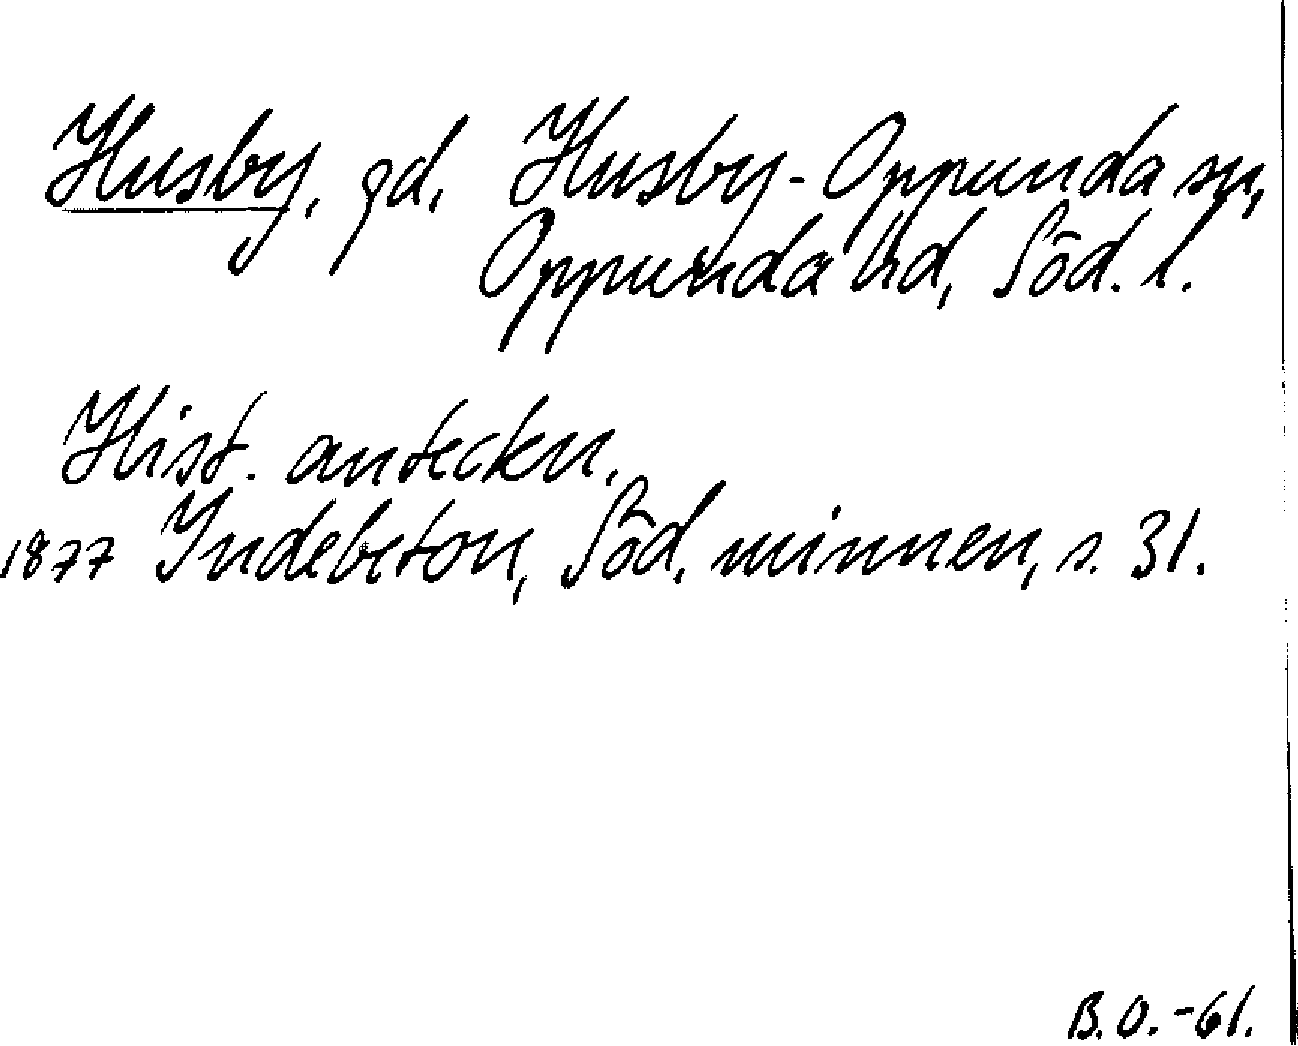 Husby, gd, Husby-Oppunda sn,
Oppunda hd, Söd. l.
Hist. anteckn.
1877 Indebetou, Söd. minnen, s. 31.
B.O.-61.